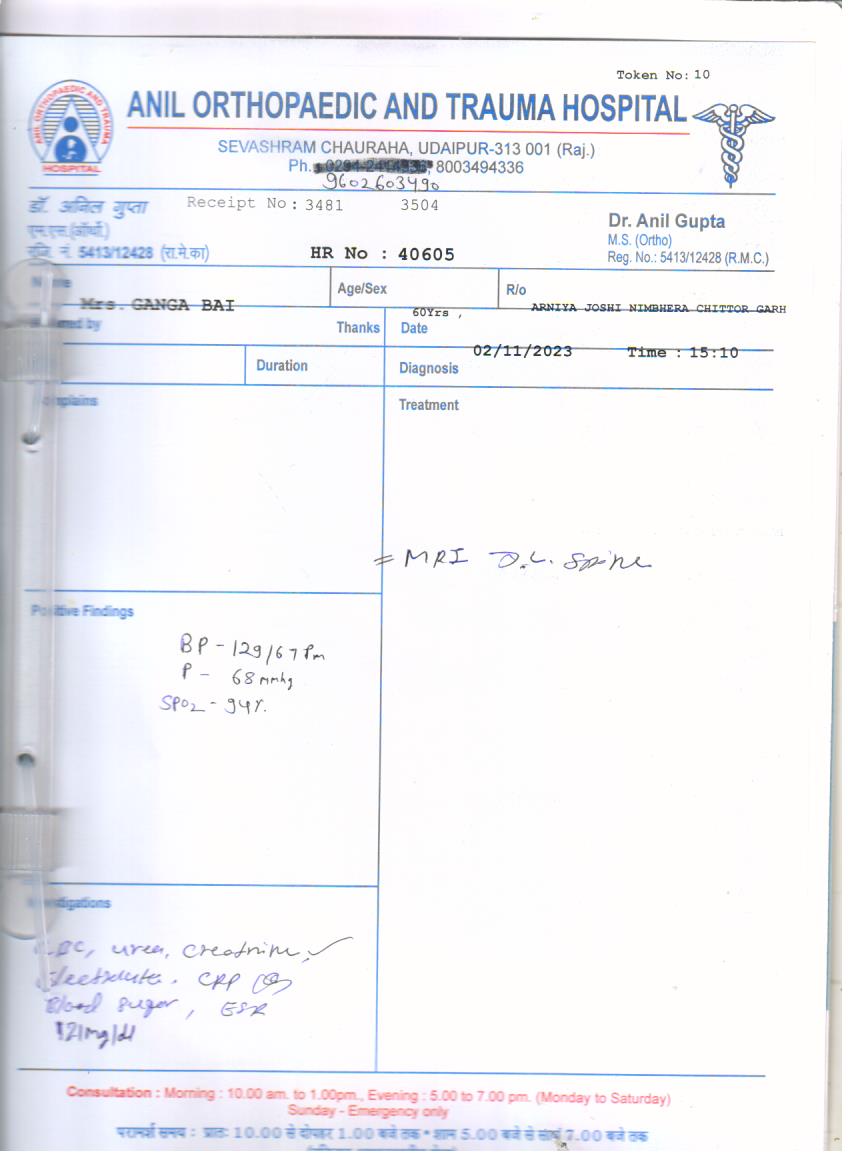 Token No: 10
ANIL ORTHOPAEDIC AND TRAUMA HOSPITAL
ANIL ORTHOPAEDIC AND TRAUMA
HOSPITAL
SEVASHRAM CHAURAHA, UDAIPUR-313 001 (Raj.)
Ph. 8003494336
9602603490
डॉ. अनिल गुप्ता
एम.एस.(ऑर्थो.)
रजि. नं. 5413/12428 (रा.मे.का)
Receipt No: 3481 3504
HR No : 40605
Dr. Anil Gupta
M.S. (Ortho)
Reg. No.: 5413/12428 (R.M.C.)
Mrs. GANGA BAI
Age/Sex
60Yrs ,
R/o
ARNIYA JOSHI NIMBHERA CHITTOR GARH
by
Thanks
Date
02/11/2023 Time : 15:10
Duration
Diagnosis
Treatment
= MRI D.L. Spine
Positive Findings
BP - 129/67 Pm
P - 68 mmhg
SPO2 - 94%
CBC, urea, creatnine,
CRP
Blood suger, ESR
121mg/dl
Consultation : Morning : 10.00 am. to 1.00pm., Evening : 5.00 to 7.00 pm. (Monday to Saturday)
Sunday - Emergency only
परामर्श समय : प्रातः 10.00 से दोपहर 1.00 बजे तक * शाम 5.00 बजे से सायं 7.00 बजे तक